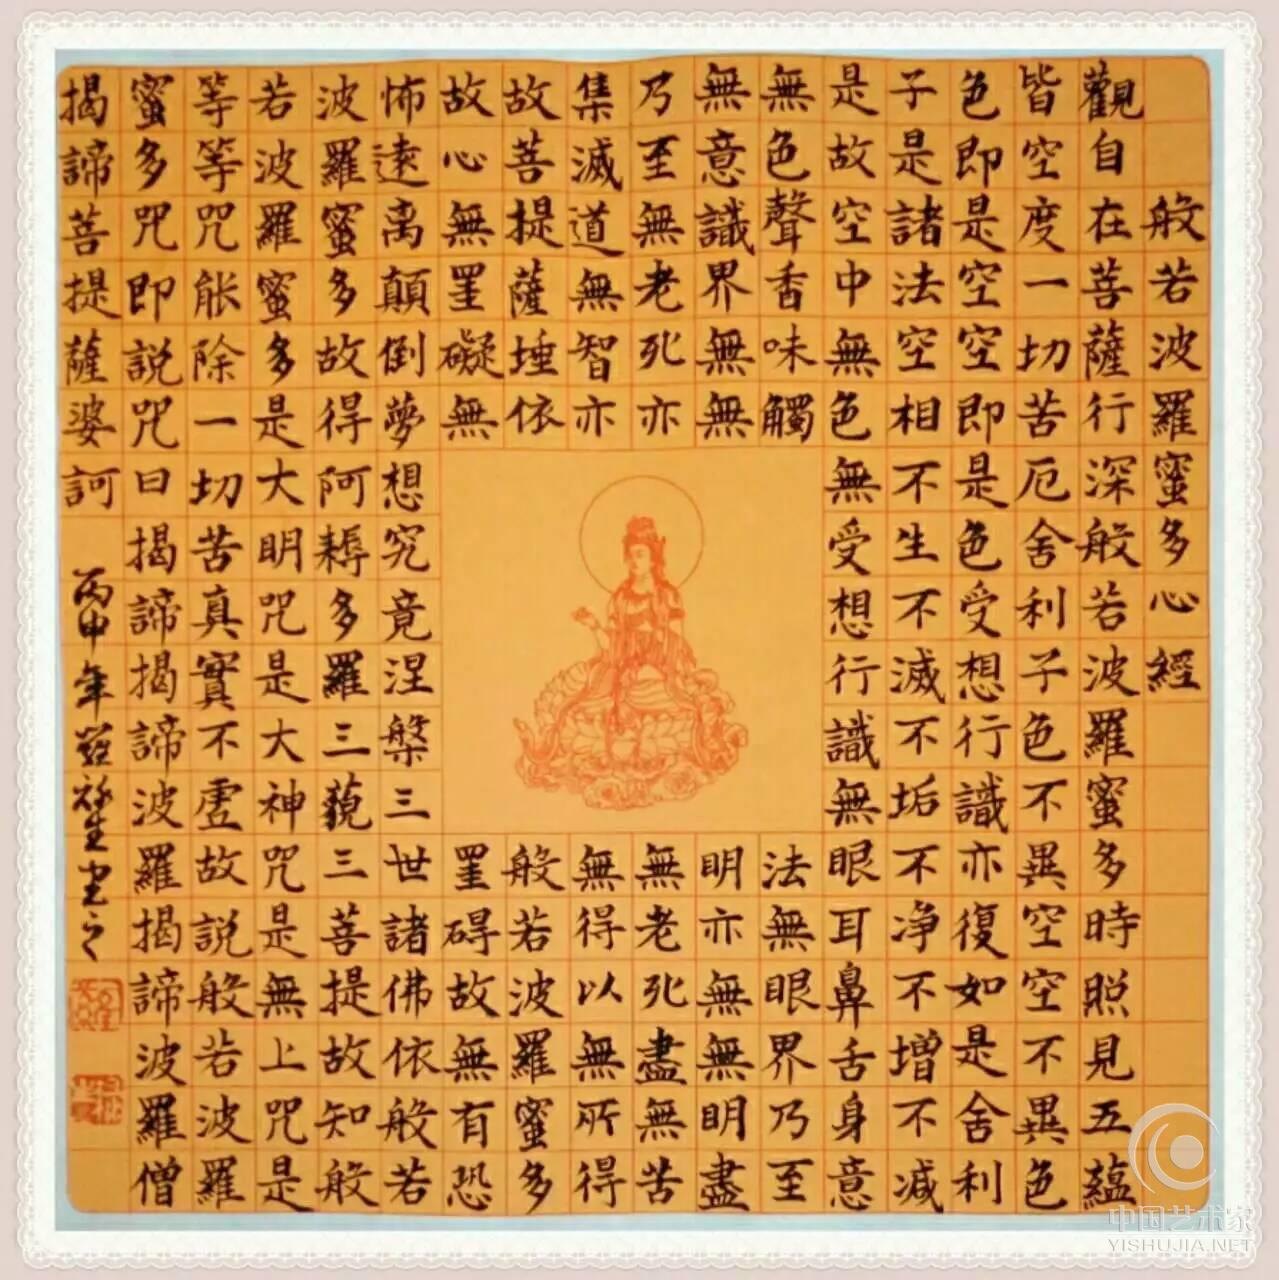 般若波羅蜜多心經
觀自在菩薩行深般若波羅蜜多時照見五蘊
皆空度一切苦厄舍利子色不異空空不異色
色即是空空即是色受想行識亦復如是舍利
子是諸法空相不生不滅不垢不净不增不減
是故空中無色無受想行識無眼耳鼻舌身意
無色聲香味觸法無眼界乃至
無意識界無無明亦無無明盡
乃至無老死亦無老死盡無苦
集滅道無智亦無得以無所得
故菩提薩埵依般若波羅蜜多
故心無罣礙無罣碍故無有恐
怖遠离顛倒夢想究竟涅槃三世諸佛依般若
波羅蜜多故得阿耨多羅三藐三菩提故知般
若波羅蜜多是大明咒是大神咒是無上咒是
等等咒能除一切苦真實不虛故説般若波羅
蜜多咒即説咒曰揭諦揭諦波羅揭諦波羅僧
揭諦菩提薩婆訶
丙申年
中国艺术家
YISHUJIA.NET